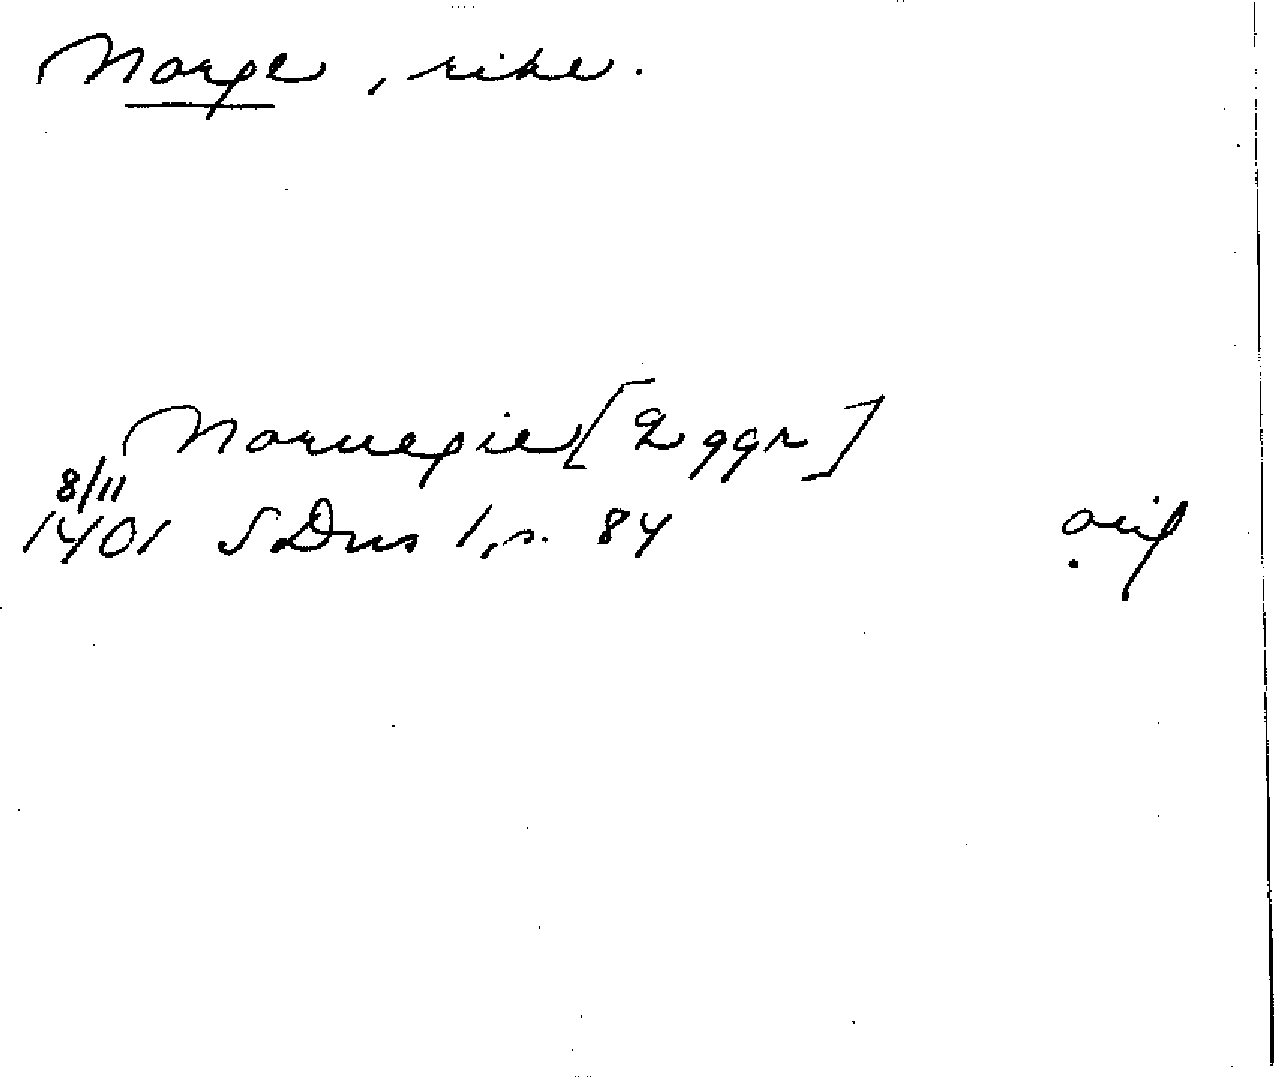 Norge, rike.
Noruegie [2 ggr]
8/11
1401 SDns 1, s. 84 orig